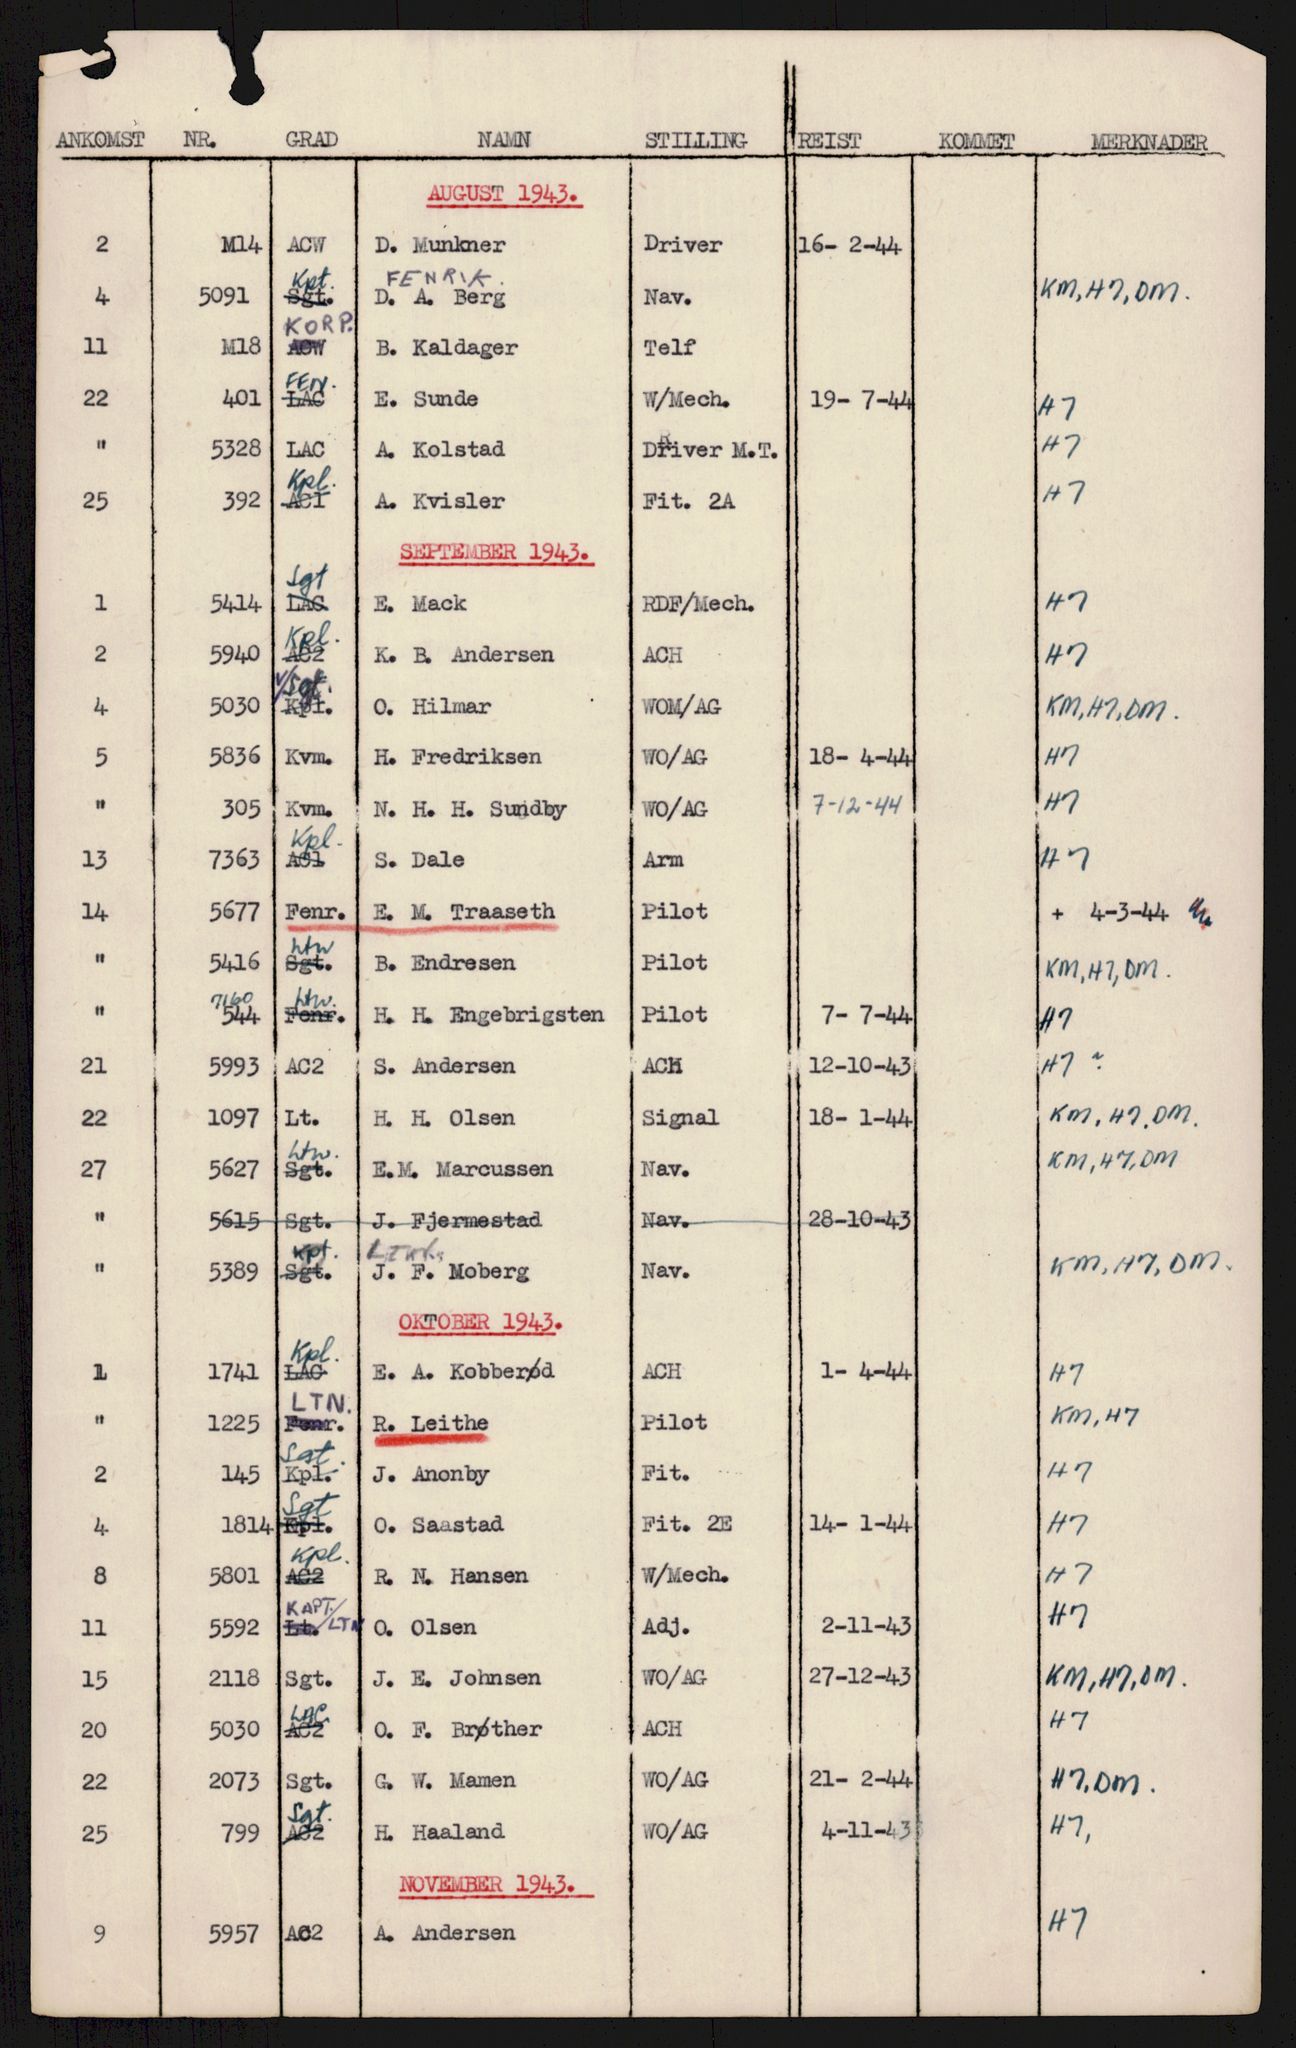 ANKOMST NR. GRAD NAMN STILLING REIST KOMMET MERKNADER
AUGUST 1943.
2 M14 ACW D. Munkner Driver 16- 2-44
Kpt. FENRIK.
4 5091 Sgt. D. A. Berg Nav. KM, H7, DM.
KORP.
11 M18 ACW B. Kaldager Telf
FEN.
22 401 LAC E. Sunde W/Mech. 19- 7-44 H7
" 5328 LAC A. Kolstad Driver M.T. H7
Kpl.
25 392 AC1 A. Kvisler Fit. 2A H7
SEPTEMBER 1943.
Sgt
1 5414 LAC E. Mack RDF/Mech. H7
Kpl.
2 5940 AC2 K. B. Andersen ACH H7
V/Sgt.
4 5030 Kpl. O. Hilmar WOM/AG KM, H7, DM.
5 5836 Kvm. H. Fredriksen WO/AG 18- 4-44 H7
" 305 Kvm. N. H. H. Sundby WO/AG 7-12-44 H7
Kpl.
13 7363 AC1 S. Dale Arm H7
14 5677 Fenr. E. M. Traaseth Pilot + 4-3-44
Ltn
" 5416 Sgt. B. Endresen Pilot KM, H7, DM.
7160 Ltn.
" 544 Fenr. H. H. Engebrigsten Pilot 7- 7-44 H7
21 5993 AC2 S. Andersen ACH 12-10-43 H7 ~
22 1097 Lt. H. H. Olsen Signal 18- 1-44 KM, H7, DM.
Ltn.
27 5627 Sgt. E.M. Marcussen Nav. KM, H7, DM
" 5615 Sgt. J. Fjermestad Nav. 28-10-43
Kpt.
" 5389 Sgt. J. F. Moberg Nav. KM, H7, DM.
OKTOBER 1943.
Kpl.
1 1741 LAC E. A. Kobberød ACH 1- 4-44 H7
LTN.
" 1225 Fenr. R. Leithe Pilot KM, H7
Sgt.
2 145 Kpl. J. Anonby Fit. H7
Sgt
4 1814 Kpl. O. Saastad Fit. 2E 14- 1-44 H7
Kpl.
8 5801 AC2 R. N. Hansen W/Mech. H7
KAPT./LTN
11 5592 Lt. O. Olsen Adj. 2-11-43 H7
15 2118 Sgt. J. E. Johnsen WO/AG 27-12-43 KM, H7, DM.
LAC
20 5030 AC2 O. F. Brøther ACH H7
22 2073 Sgt. G. W. Mamen WO/AG 21- 2-44 H7, DM.
Sgt.
25 799 AC2 H. Haaland WO/AG 4-11-43 H7,
NOVEMBER 1943.
9 5957 AC2 A. Andersen H7